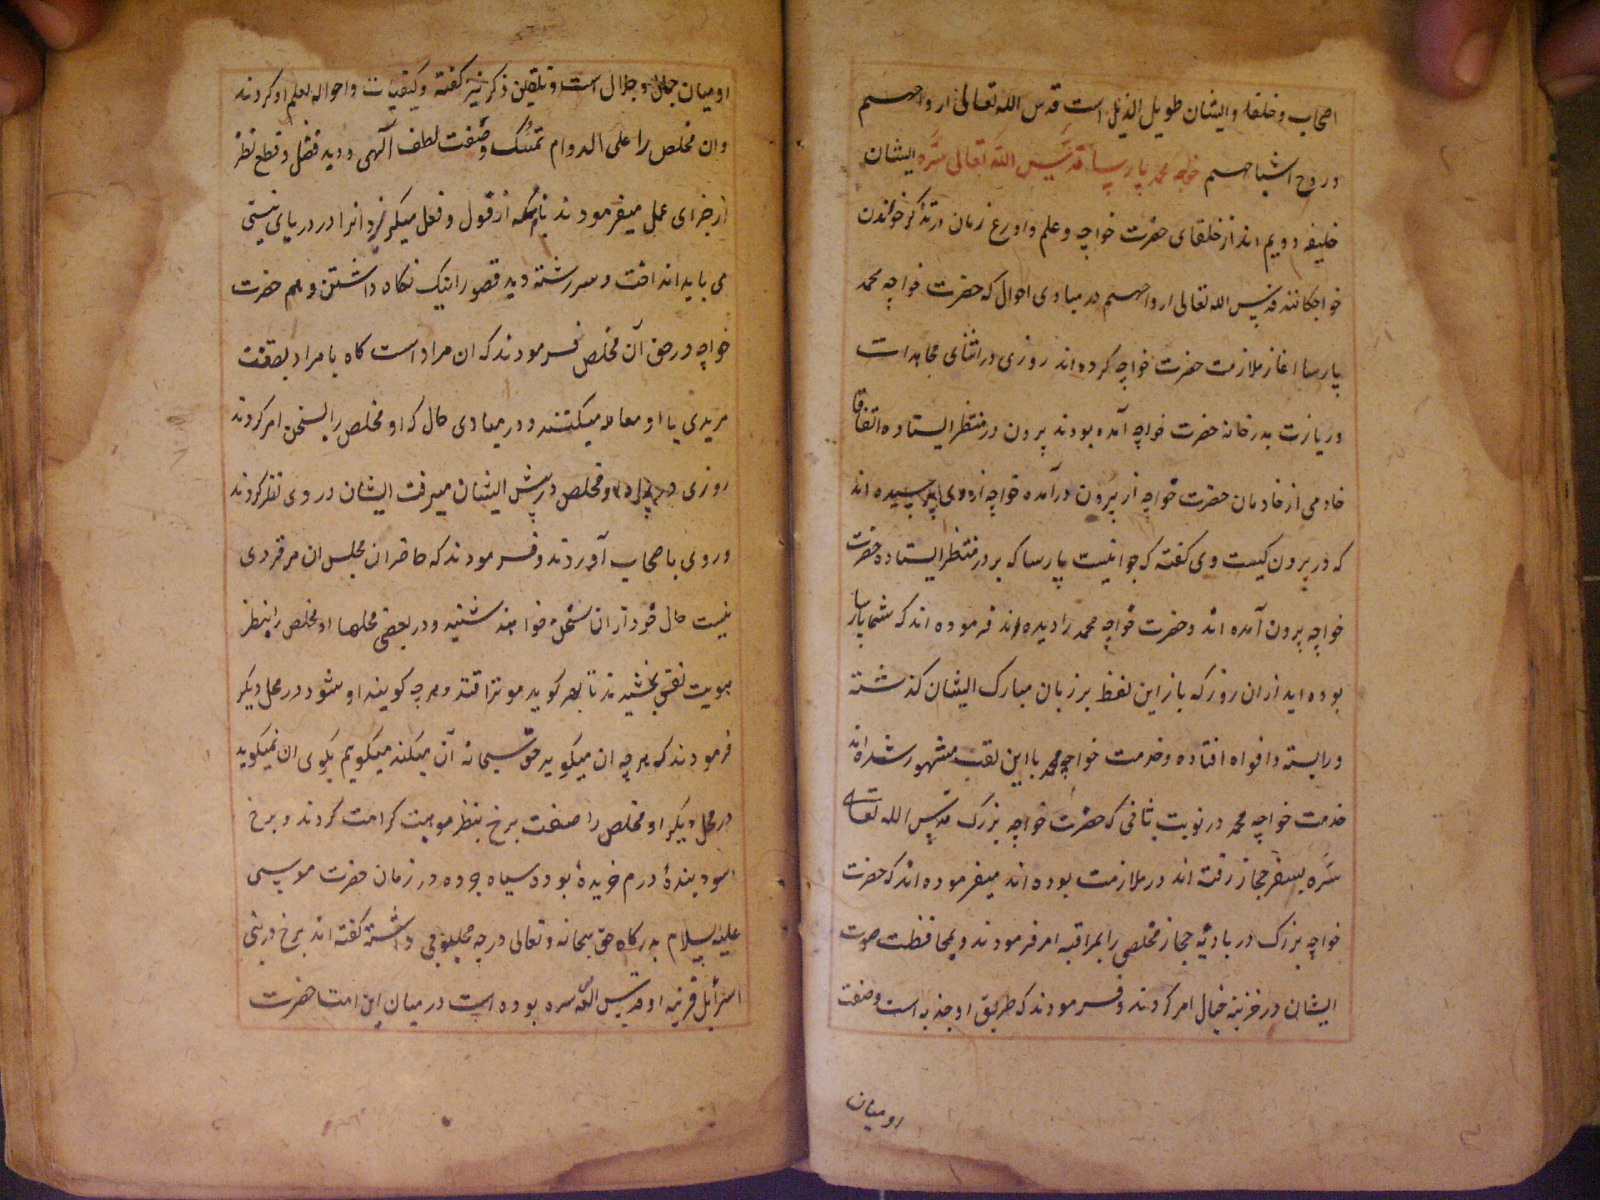 اصحاب و خلفاء ایشان طویل الذیل است قدس الله تعالی ارواحهم
و روح اشباحهم خواجه محمد پارسا قدس الله تعالی سره ایشان
خلیفه دویم اند از خلفای حضرت خواجه و علم و اورع زمان در تذکر خواندن
خواجکانند قدس الله تعالی ارواحهم در مبادی احوال که حضرت خواجه محمد
پارسا اغاز ملازمت حضرت خواجه کرده اند روزی در اثنای مجاهدات
و ریازت بدر خانه حضرت خواجه آمده بودند برون در منتظر ایستاده اتفاقا
خادمی از خادمان حضرت خواجه از برون درآمده خواجه از وی پرسیده اند
که در برون کیست وی کفته که جوانیست پارسا که بر در منتظر ایستاده حضرت
خواجه برون آمده اند و حضرت خواجه محمد را دیده اند فرموده اند که شما پارسا
بوده اید از ان روز که باز این لفظ بر زبان مبارک ایشان کذشته
در السنه و افواه افتاده و خدمت خواجه محمد با این لقب مشهور شده اند
خدمت خواجه محمد در نوبت ثانی که حضرت خواجه بزرک قدس الله تعالی
سره بسفر حجاز رفته اند در ملازمت بوده اند میفرموده اند که حضرت
خواجه بزرک در بادیه حجاز مخلصی را بمراقبه امر فرمودند و بمحافظت صورت
ایشان در خزینه خیال امر کردند و فرمودند که طریق او جذبه است و صفت
او میان
او میان جمال و جلال است و تلقین ذکر نیز کفته و کیفیات و احواله بعلم او کردند
و ان مخلص را علی الدوام تمسک و صفت لطف آلهی و دید فضل و قطع نظر
از جزای عمل میفرمودند قول و فعل میکرد انرا در دریای نیستی
می باید انداخت و سررشته دید قصور را نیک نکاه داشتن و هم حضرت
خواجه در حق آن مخلص فرمودند که ان مراد است کاه با مراد بصفت
مریدی با او معامله میکنند و در مبادی حال که او مخلص را بسخن امر کردند
روزی مخلص در پیش ایشان میرفت ایشان در وی نظر کردند
و روی باصحاب آوردند و فرمودند که حاضران مجلس ان مرفردی
نیست حال خود از ان سخن خواهند شنید و در بعضی محلها او مخلص را بنظر
موهبت نفس بخشیدند تا بهر کوید مؤثر افتد و هر چه کویند او شود در محل دیکر
فرمودند که هر چه ان میکوید حق سبحانه آن میکند میکویم بکوی ان نمیکوید
در محل دیکر او مخلص را صفت برخ بنظر موهبت کرامت کردند و برخ
اسود بنده درم خریده بوده سیاه بوده در زمان حضرت موسی
علیه السلام بدرکاه حق سبحانه و تعالی درجه محبوبی داشته کفته اند برخ در بنی
اسرائیل قرینه او قدس الله سره بوده است در میان این امت حضرت